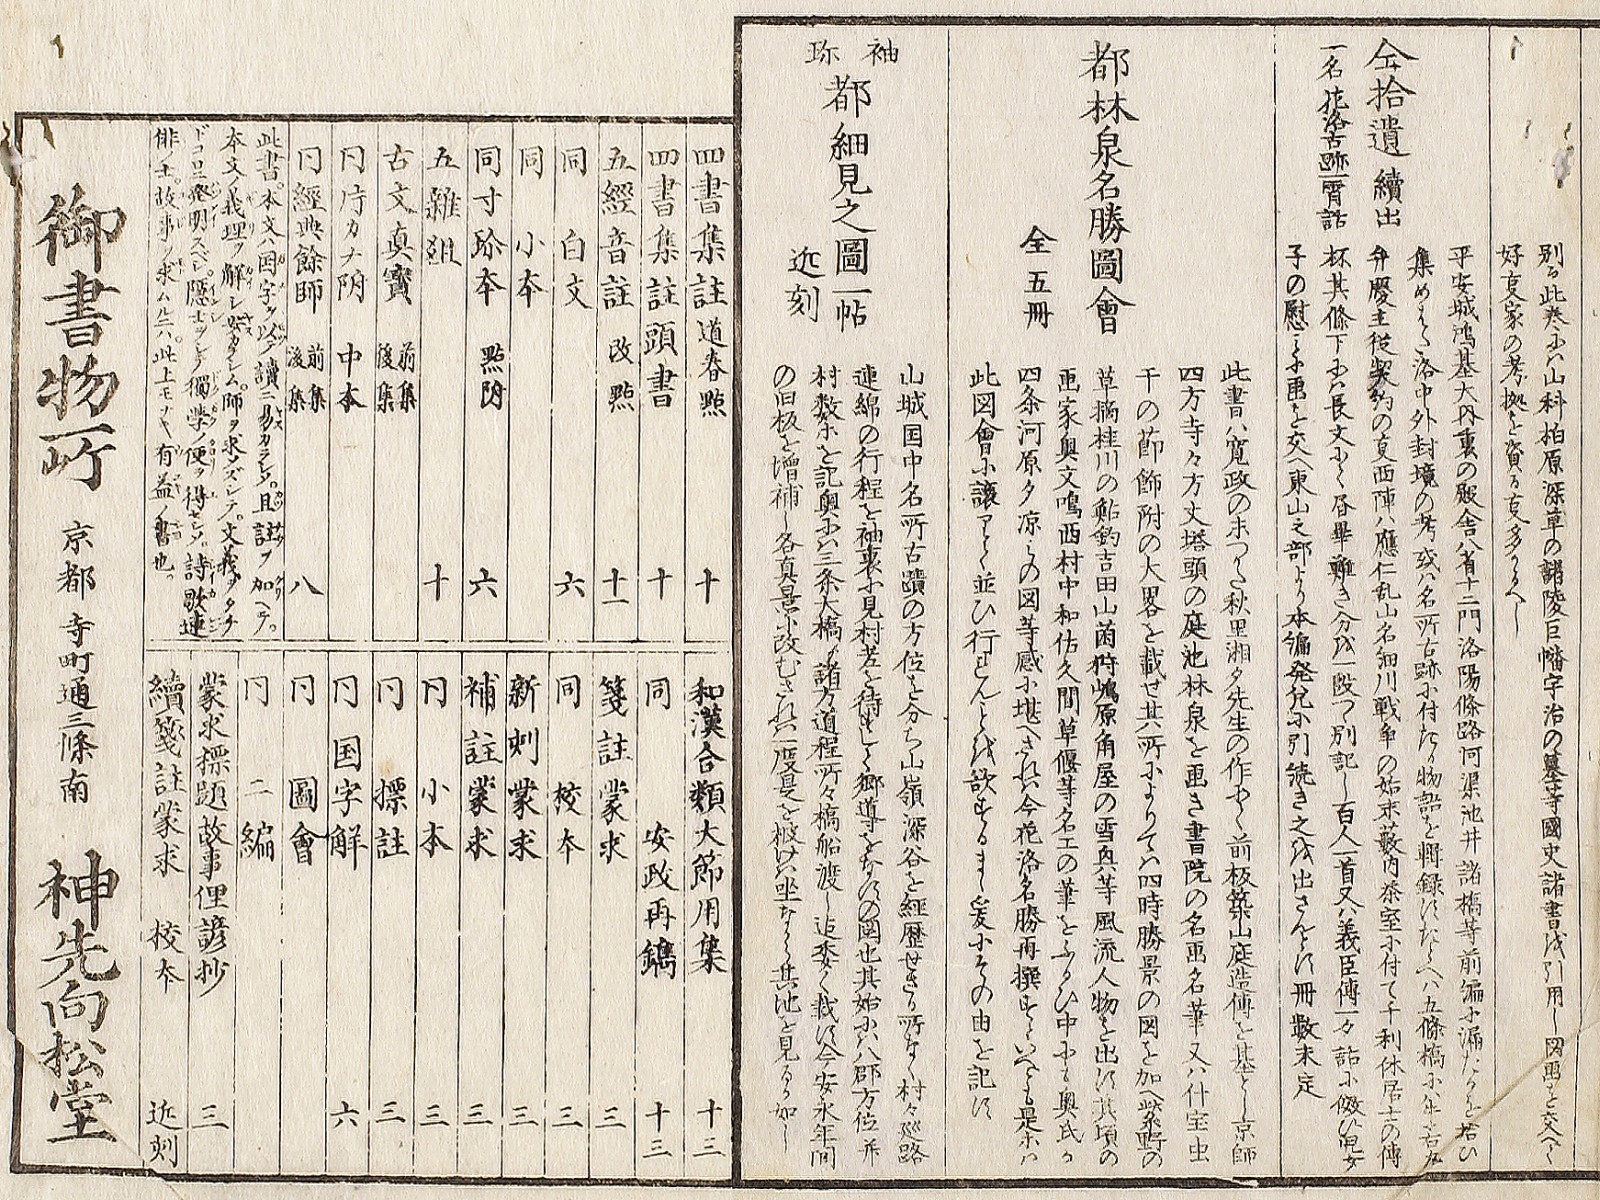 別る此巻にハ山科柏原深草の諸陵巨幡宇治の墓等國史諸書を引用し図画を交へて
好㕝家の考拠を資る㕝多かるべし
仝拾遺 續出
一名 花洛古跡一宵話
平安城鴻基大内裏の殿舎八省十二門洛陽條路河渠池井諸橋等前編に漏たるを拾ひ
集めまた洛中外封境の考或ハ名所古跡に付たる物語を輯録す
弁慶主従契約の㕝西陣ハ應仁乱山名細川戦争の始末藪内茶室に付て千利休居士の傳
杯其條下にハ長文にて昼畢難き分を一段づつ別記し百人一首又ハ義臣傳一夕話に倣ひ児女
子の慰に画を交へ東山之部より本編発兌に引続き之を出さんとす冊数未定
都林泉名勝圖會
全五冊
此書ハ寛政の末つかた秋里湘夕先生の作にて前板築山庭造傳を基とし京師
四方寺々方丈塔頭の庭池林泉を画き書院の名画名筆又ハ什宝虫
干の節飾附の大畧を載せ其所によりてハ四時勝景の図を加へ紫野の
草摘桂川の鮎釣吉田山菌狩嶋原角屋の雪興等風流人物を出す其頃の
画家奥文鳴西村中和佐久間草偃等名工の筆をふるひ中にも奥氏か
四条河原夕凉の図等感に堪へされハ今花洛名勝再撰すといへとも是等ハ
此図會に譲りて並ひ行れんとを欲するまゝ爰にその由を記す
袖珎
都細見之圖 一帖
近刻
山城国中名所古蹟の方位を分ち山嶺深谷を經歴せさる所なく村々巡路
連綿の行程を袖裏に見村老を待すして郷導をなすの図也其始にハ八郡方位并
村数等を記奥にハ三条大橋ゟ諸方道程所々橋船渡し迄委く載す今安永年間
の旧板を増補し各真景に改むされハ一度是を披けハ坐なから其地を見るか如し
四書集註 道春點 十
四書集註頭書 十
五經音註 改點 十一
同 白文 六
同 小本
同寸珎本 點附 六
五雜爼 十
古文真寳 前集 後集
同片カナ附 中本
同經典餘師 前集 後集 八
此書ハ本文ハ国字ヲ以テ讀ニ易カラシメ且註ヲ加ヘテ
本文ノ義理ヲ解シ安カラシム師ヲ求ズシテ文義ヲタチ
ドコロニ発明スベシ隠士ヲシテ獨学ノ便ヲ得セシム詩歌連
俳ノ士故事ヲ求ムルニハ此上モナキ有益ノ書也
和漢合類大節用集 十三
同 安政再鐫 十三
箋註蒙求 三
同 校本 三
新刻蒙求 三
補註蒙求 三
同 小本 三
同 標註 三
同 国字解 六
同 圖會
同 二編
蒙求標題故事俚諺抄 三
續箋註蒙求 校本 近刻
御書物所 京都寺町通三條南 神先向松堂